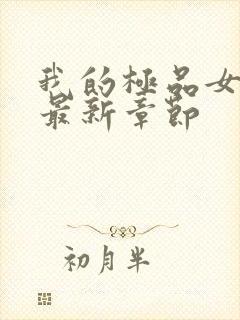 我的極品女
最新章節
初月半